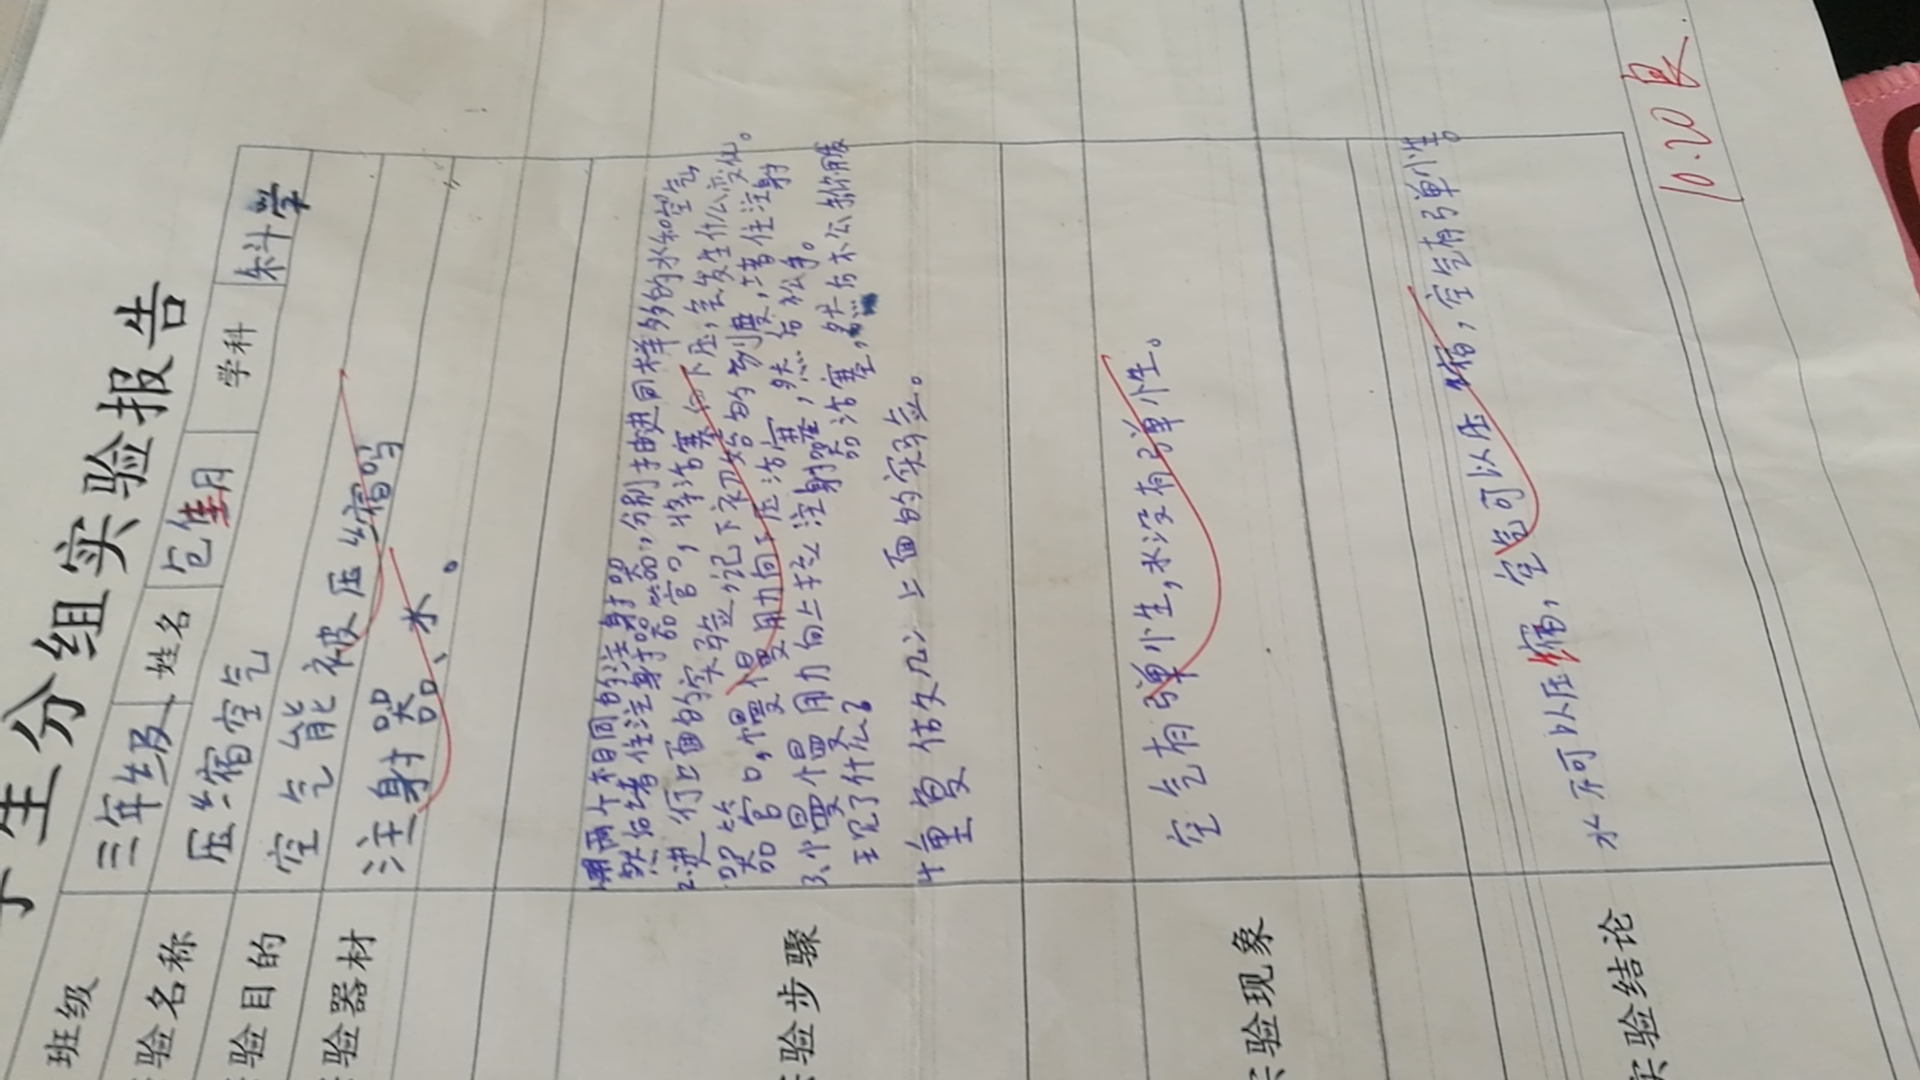 学生分组实验报告
班级 三年级 姓名 包佳月 学科 科学
实验名称 压缩空气
实验目的 空气能被压缩吗
实验器材 注射器、水。
用两个相同的注射器,分别抽进同样多的水和空气
然后堵住注射器的管口,将活塞向下压,会发生什么变化。
2.进行上面的实验,记下初始的刻度,堵住注射
器管口,慢慢用力向下压活塞,然后松手。
3、慢慢用力向上拉注射器活塞,然后不松
现了什么?
4重复做几次上面的实验。
实验步骤
空气有弹性,水没有弹性。
实验现象
水不可以压缩,空气可以压缩,空气有弹性。
实验结论
10.20 良